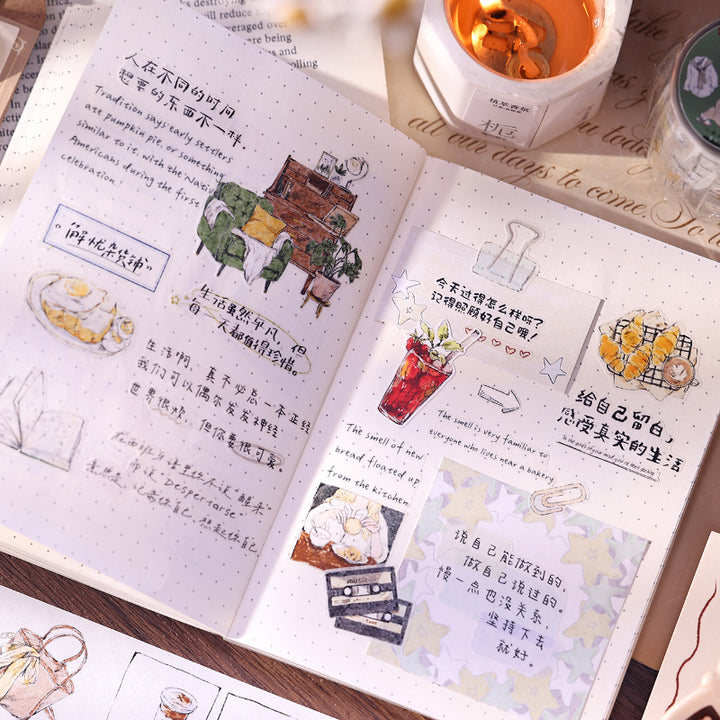 人在不同的时间
想要的东西不一样.
Tradition says early settlers
ate pumpkin pie, or something
similar to it, with the Nati
Americans during the first
celebration!
"解忧杂货铺"
生活虽然平凡, 但
每一天都值得珍惜。
生活啊, 真不必总一本正经
我们可以偶尔发发神经
世界很烦, 但你要很可爱。
在西班牙语里你不说"醒来"
你说"Despertarse"
今天过得怎么样呀?
记得照顾好自己哦!
给自己留白,
感受真实的生活
The smell is very familiar to
everyone who lives near a bakery.
The smell of new
bread floated up
from the kitchen
MUSIC
说自己能做到的,
做自己说过的。
慢一点也没关系,
坚持下去
就好。
植萃香氛
all our days to come.